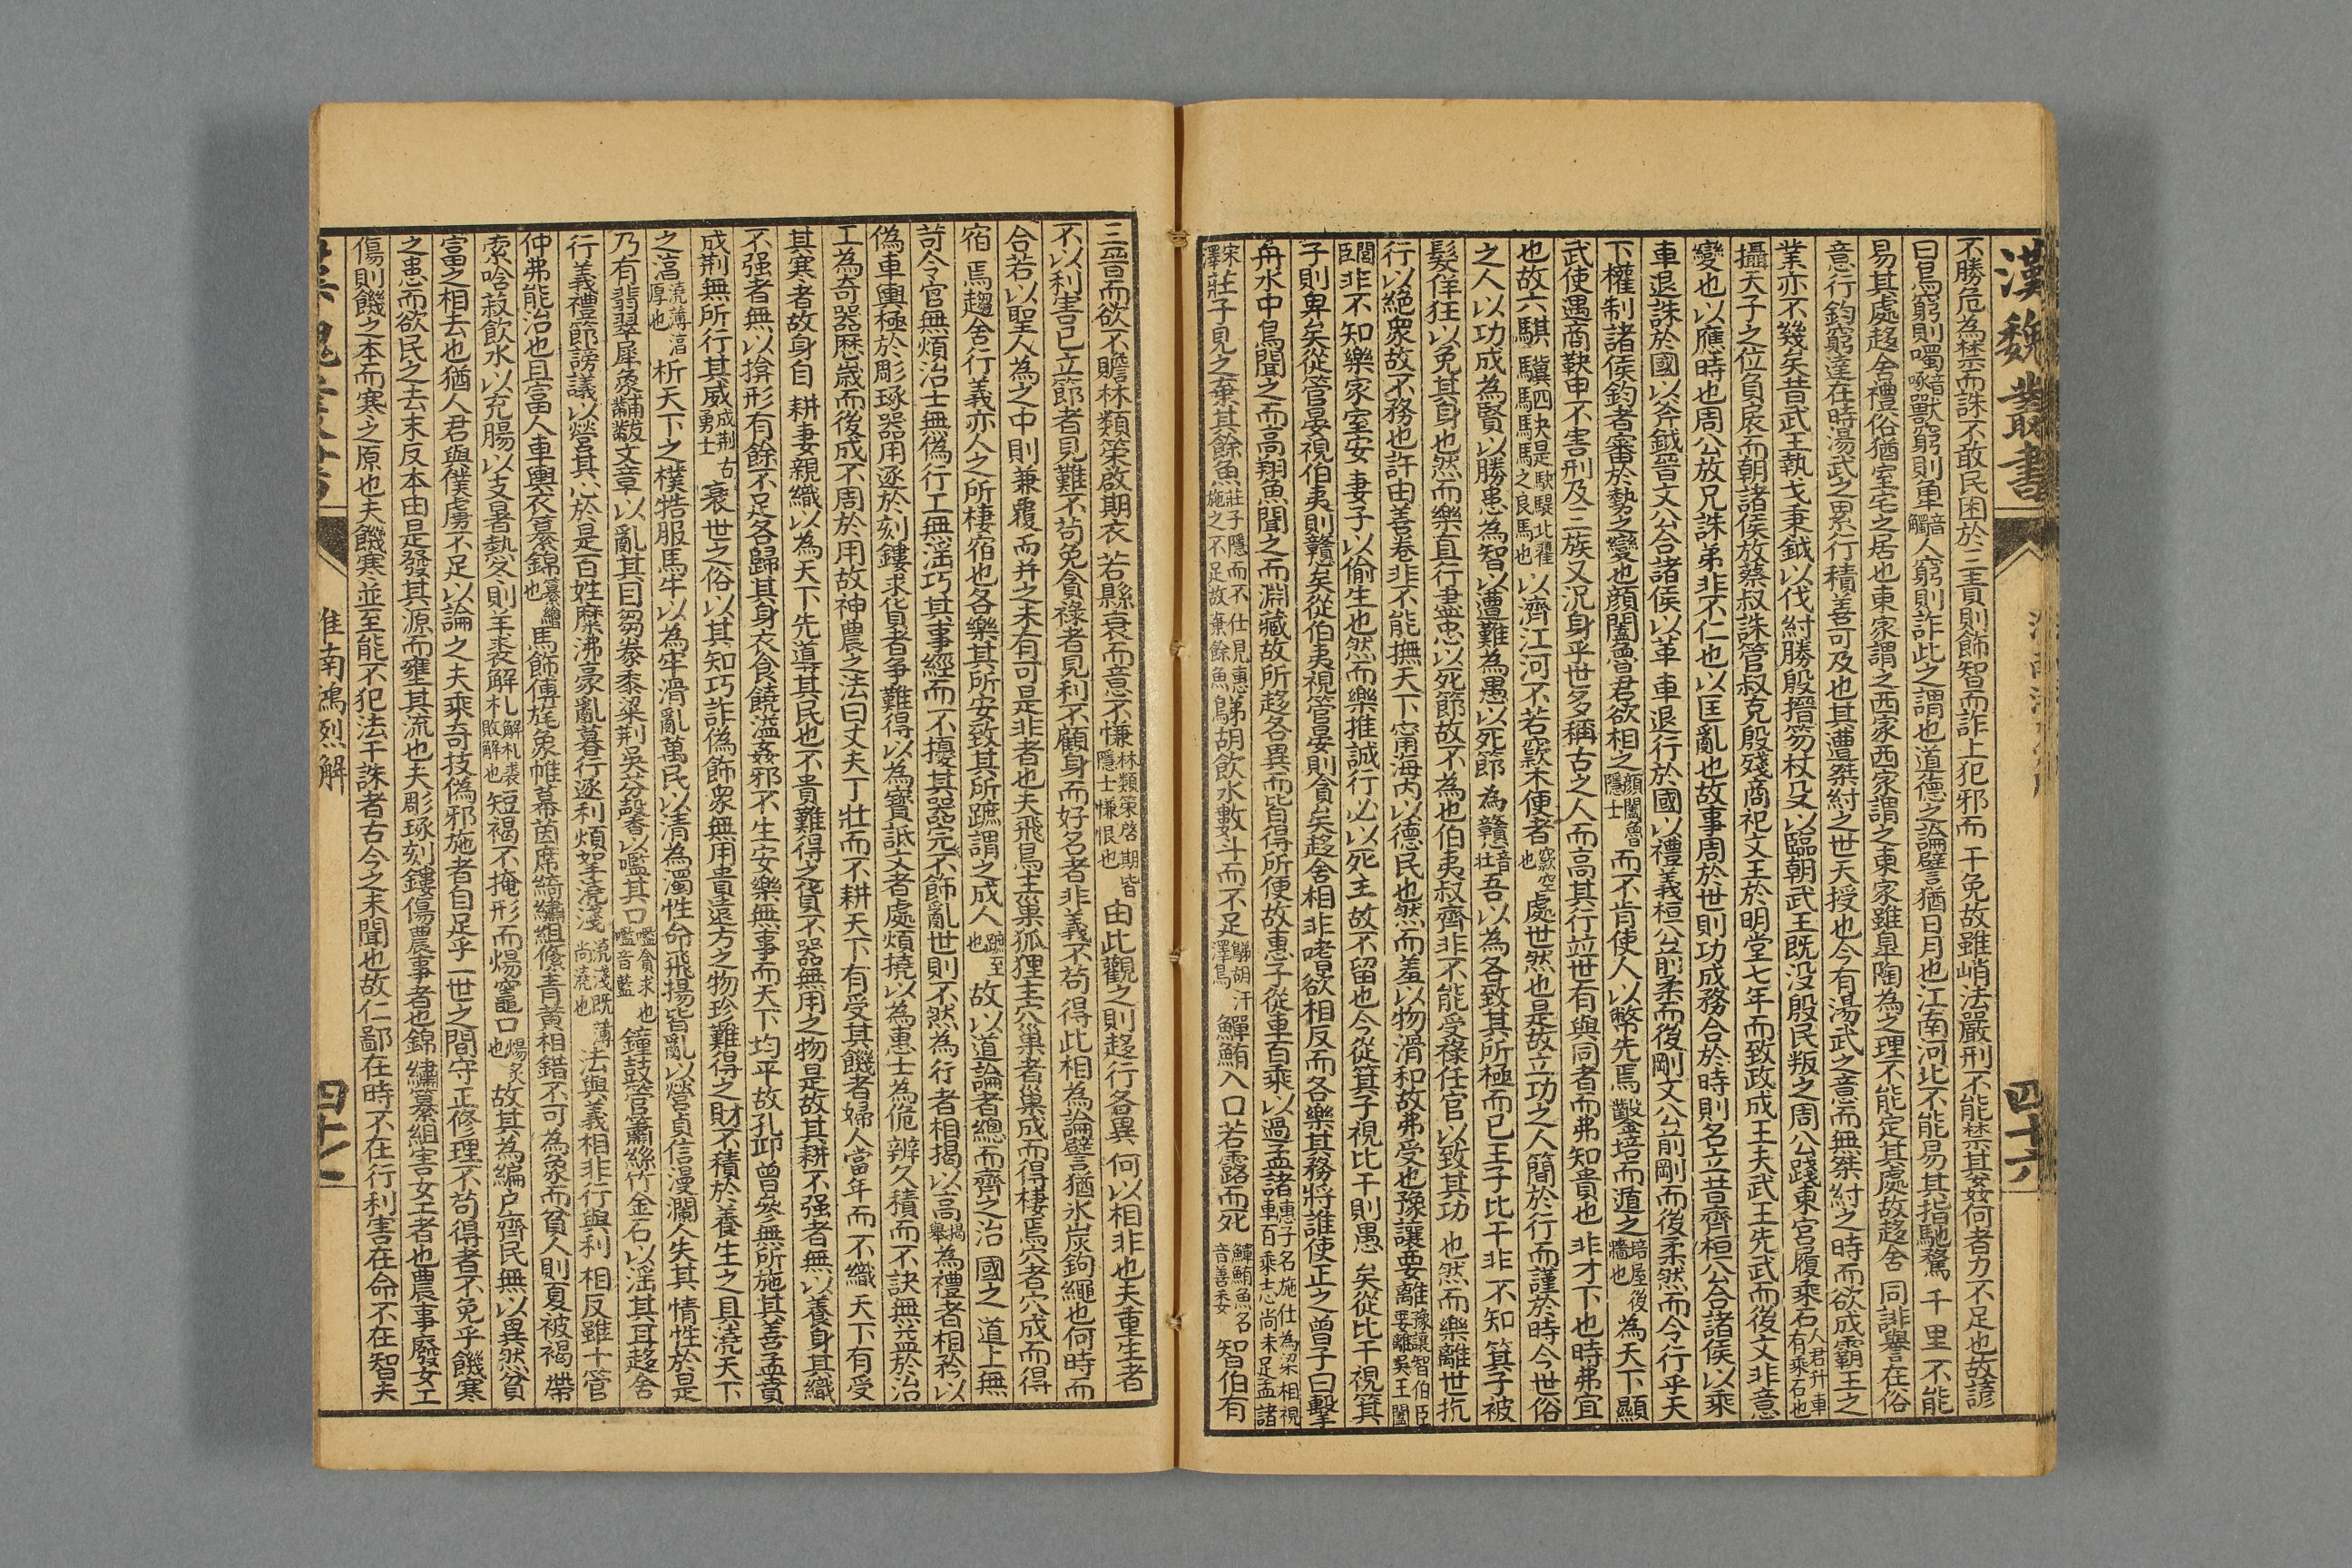 漢魏叢書
四十六
不勝危為禁而誅不敢民困於三責則飾智而詐上犯邪而干免故雖峭法嚴刑不能禁其姦何者力不足也故諺
曰鳥窮則噣音啄獸窮則𧣾音觸人窮則詐此之謂也道德之論譬猶日月也江南河北不能易其指馳騖千里不能
易其處趍舍禮俗猶室宅之居也東家謂之西家西家謂之東家雖臯陶為之理不能定其處故趍舍同誹譽在俗
意行鈞窮達在時湯武之累行積善可及也其遭桀紂之世天授也今有湯武之意而無桀紂之時而欲成霸王之
業亦不幾矣昔武王執戈秉鉞以伐紂勝殷搢笏杖殳以臨朝武王既没殷民叛之周公踐東宮履乘石人君升車有乘石也
攝天子之位負扆而朝諸侯放蔡叔誅管叔克殷殘商祀文王於明堂七年而致政成王夫武王先武而後文非意
變也以應時也周公放兄誅弟非不仁也以匡亂也故事周於世則功成務合於時則名立昔齊桓公合諸侯以乘
車退誅於國以斧鉞晉文公合諸侯以革車退行於國以禮義桓公前柔而後剛文公前剛而後柔然而令行乎天
下權制諸侯鈞者審於勢之變也顏闔魯君欲相之顏闔魯隱士而不肯使人以幣先焉鑿培而遁之培屋後牆也為天下顯
武使遇商鞅申不害刑及三族又况身乎世多稱古之人而高其行竝世有與同者而弗知貴也非才下也時弗宜
也故六騏驥四駃騠是駃騠北翟之良馬也以濟江河不若窾木便者窾空也處世然也是故立功之人簡於行而謹於時今世俗
之人以功成為賢以勝患為智以遭難為愚以死節為戇音壮吾以為各致其所極而已王子比干非不知箕子被
髮佯狂以免其身也然而樂直行盡忠以死節故不為也伯夷叔齊非不能受祿任官以致其功也然而樂離世抗
行以絕衆故不務也許由善卷非不能撫天下寧海内以德民也然而羞以物滑和故弗受也豫讓要離豫讓智伯臣要離吳王闔
閭臣非不知樂家室安妻子以偷生也然而樂推誠行必以死主故不留也今從箕子視比干則愚矣從比干視箕
子則卑矣從管晏視伯夷則戇矣從伯夷視管晏則貪矣趍舍相非嗜欲相反而各樂其務將誰使正之曾子曰擊
舟水中鳥聞之而高翔魚聞之而淵藏故所趍各異而皆得所便故惠子從車百乘以過孟諸惠子名施仕為梁相視車百乘志尚未足孟諸
宋澤莊子見之棄其餘魚莊子隱而不仕見惠施之不足故棄餘魚鵜胡飲水數斗而不足鵜胡汙澤鳥鱓鮪入口若露而死鱓鮪魚名音善委智伯有
三晉而欲不贍林類榮啟期衣若縣衰而意不慊林類榮啓期皆隱士慊恨也由此觀之則趍行各異何以相非也夫重生者
不以利害已立節者見難不苟免貪祿者見利不顧身而好名者非義不苟得此相為論譬猶氷炭鉤繩也何時而
合若以聖人為之中則兼覆而并之未有可是非者也夫飛鳥主巢狐狸主穴巢者巢成而得棲焉穴者穴成而得
宿焉趨舍行義亦人之所棲宿也各樂其所安致其所蹠謂之成人蹠至也故以道論者總而齊之治國之道上無
苛令官無煩治士無偽行工無淫巧其事經而不擾其器完不飾亂世則不然為行者相揭以高揭舉為禮者相矜以
偽車輿極於彫琢器用逐於刻鏤求貨者争難得以為寶詆文者處煩撓以為惠士為佹辨久積而不訣無益於治
工為奇器歴歲而後成不周於用故神農之法曰丈夫丁壯而不耕天下有受其饑者婦人當年而不織天下有受
其寒者故身自耕妻親織以為天下先道其民也不貴難得之貨不器無用之物是故其耕不强者無以養身其織
不强者無以揜形有餘不足各歸其身衣食饒溢姦邪不生安樂無事而天下均平故孔邱曾參無所施其善孟賁
成荆無所行其威成荆古勇士衰世之俗以其知巧詐偽飾衆無用貴遠方之物珍難得之財不積於養生之具澆天下
之淳澆薄淳厚也析天下之樸牿服馬牛以為牢滑亂萬民以清為濁性命飛揚皆亂以營貞信漫瀾人失其情性於是
乃有翡翠犀象黼黻文章以亂其目芻豢黍粱荆吳芬馨以嚂其口嚂貪求也嚂音藍鐘鼓管簫絲竹金石以淫其耳趍舍
行義禮節謗議以營其心於是百姓糜沸豪亂暮行逐利煩挐澆淺流淺既薄尚澆也法與義相非行與利相反雖十管
仲弗能治也且富人車輿衣纂錦纂繒也馬飾傅旄象帷幕茵席綺繡絛組青黄相錯不可為象而貧人則夏被褐帶
索唅菽飲水以充腸以支暑熱冬則羊裘解札解札裘敗解也短褐不掩形而煬竈口煬炙也故其為編户齊民無以異然貧
富之相去也猶人君與僕虜不足以論之夫乘奇技偽邪施者自足乎一世之間守正修理不苟得者不免乎饑寒
之患而欲民之去末反本由是發其源而壅其流也夫彫琢刻鏤傷農事者也錦繡纂組害女工者也農事廢女工
傷則饑之本而寒之原也夫饑寒並至能不犯法干誅者古今之未聞也故仁鄙在時不在行利害在命不在智夫
淮南鴻烈解
四十七